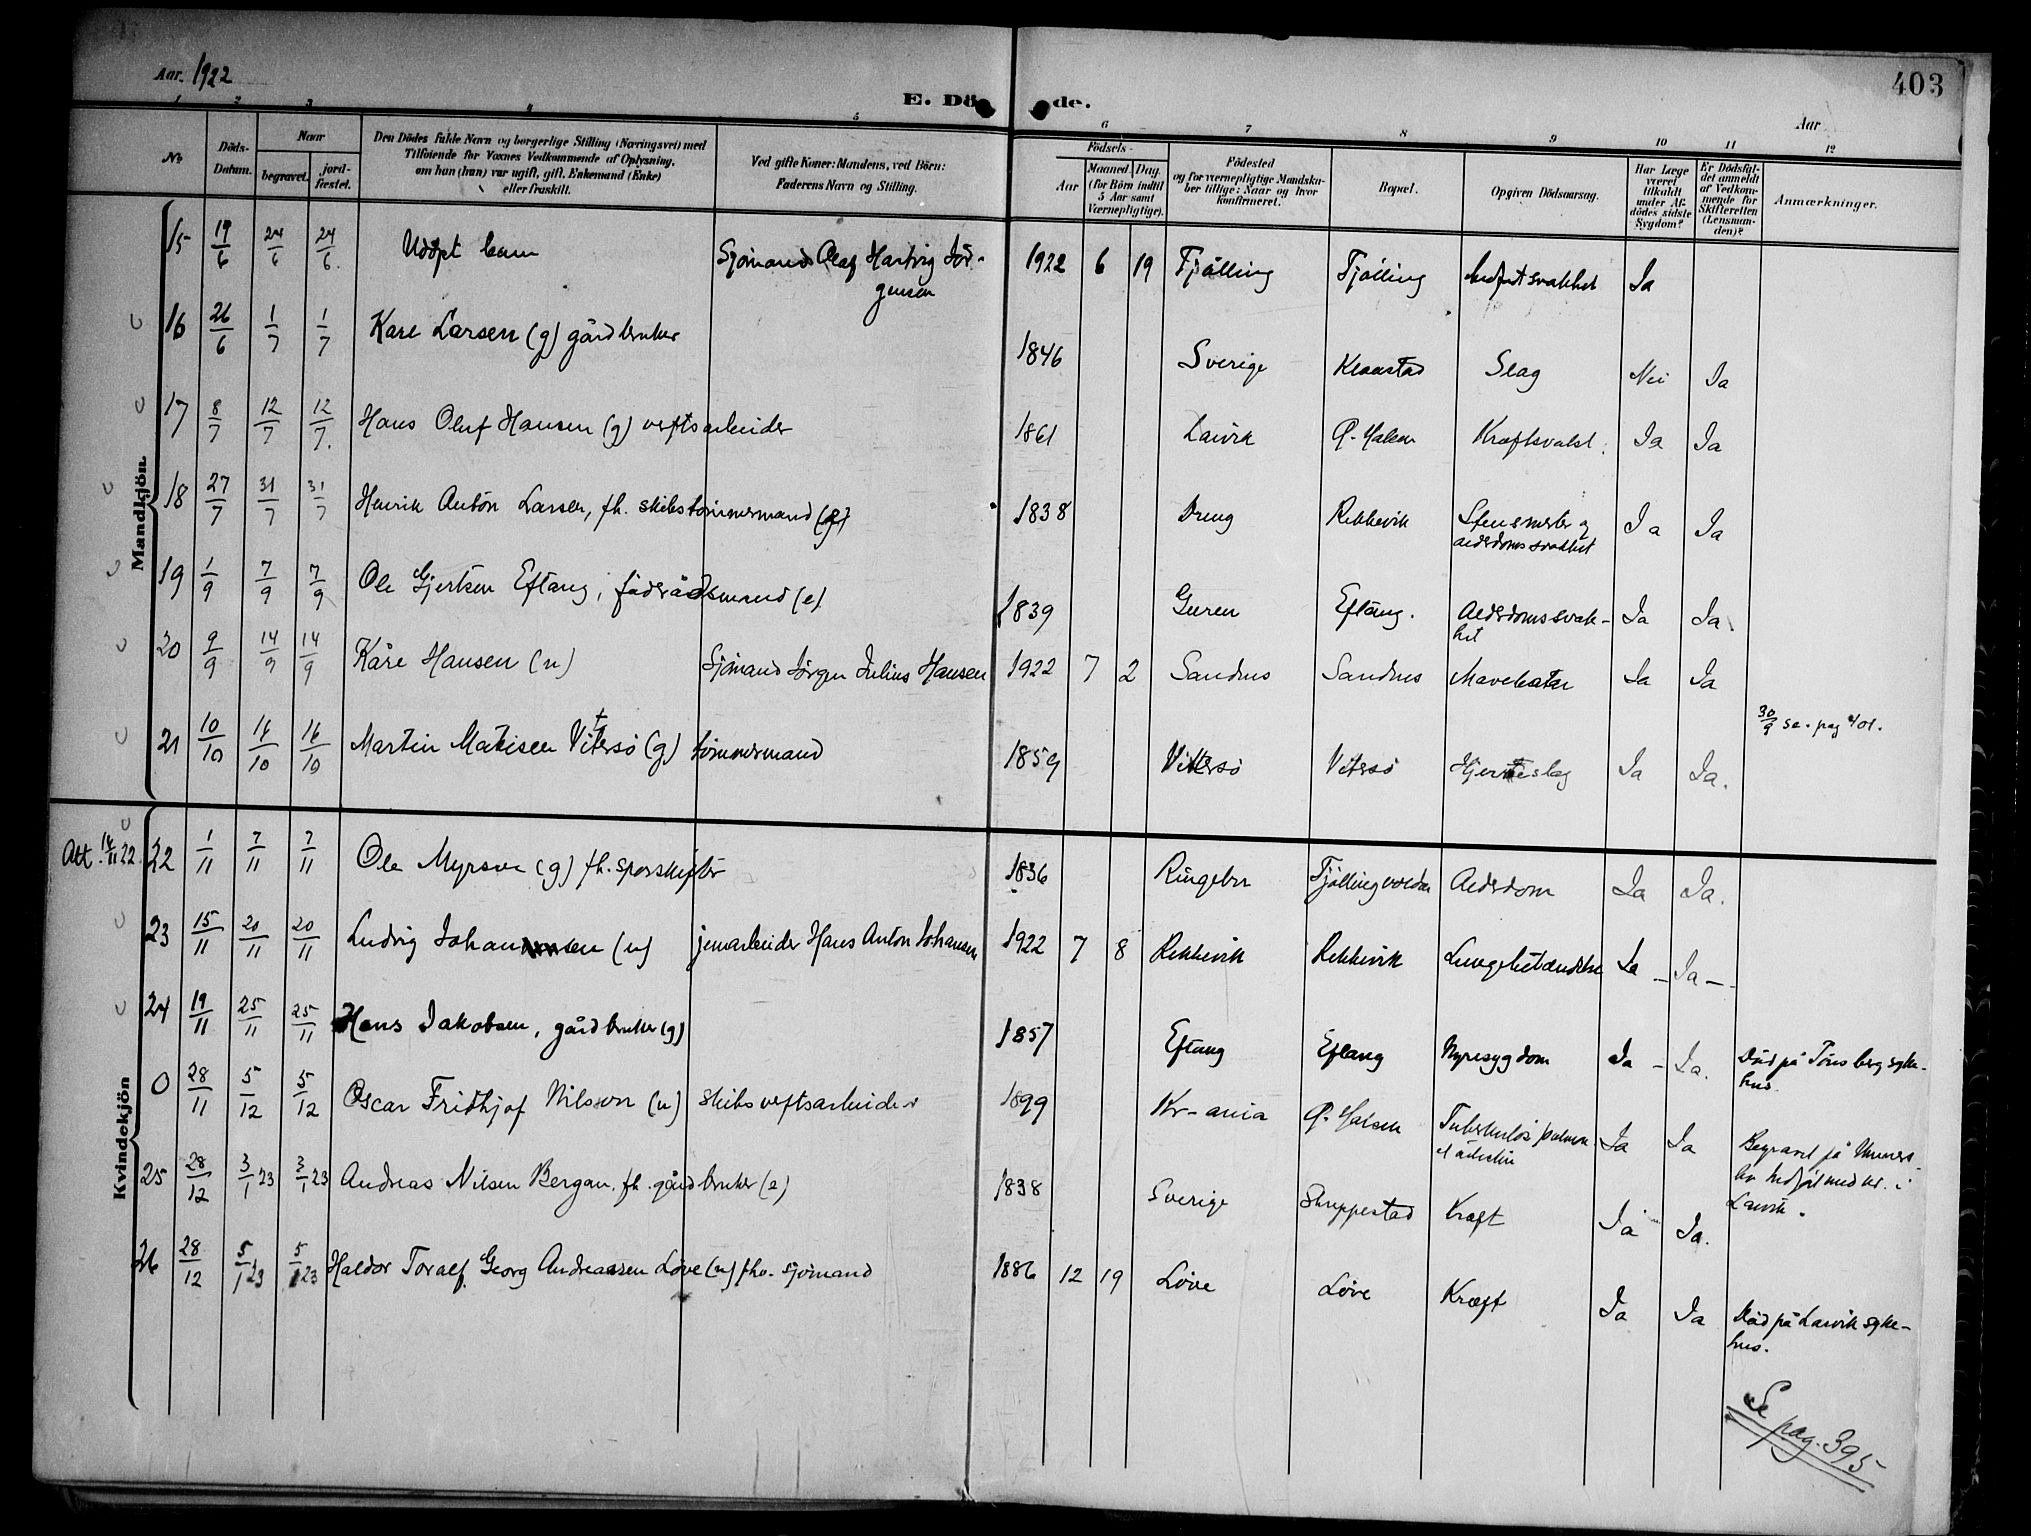 Aar. 1922
403
E. Dö de.
Aar
1 2 3 4 5 6 7 8 9 10 11 12
No
Döds-Datum.
Naar
begravet.
jord-fæstet.
Den Dödes fulde Navn og borgerlige Stilling (Næringsvei) med
Tilföiende for Voxnes Vedkommende af Oplysning,
om han (hun) var ugift, gift, Enkemand (Enke)
eller fraskilt.
Ved gifte Koner: Mandens, ved Börn:
Faderens Navn og Stilling.
Födsels-
Aar
Maaned. Dag.
(for Börn indtil
5 Aar samt
Værnepligtige).
Födested
og for værnepligtige Mandska-
ber tillige: Naar og hvor
konfirmeret.
Bopæl.
Opgiven Dödsaarsag.
Har Læge
været
tilkaldt
under Af-
dödes sidste
Sygdom?
Er Dödsfal-
det anmeldt
af Vedkom-
mende for
Skifteretten
(Lensman-
den)?
Anmærkninger.
Mandkjön.
15 19/6 24/6 24/6. Udöpt barn Sjömand Olaf Hartvig Jör-
gensen 1922 6 19 Tjølling Tjølling Medfødt svakhet Ja
16 26/6 1/7 1/7 Kare Larsen (g) gårdbruker 1846 Sverige Klaastad Slag Nei Ja
17 8/7 12/7 12/7. Hans Oluf Hansen (g) verftsarbeider 1861 Larvik Ø. Halsen Kræftsvulst. Ja Ja
18 27/7 31/7 31/7 Henrik Anton Larsen, fh. skibstömmermand (g) 1838 Dreng Rekkevik Stensmerter og
alderdomssvakhet Ja Ja
19 1/9 7/9 7/9 Ole Gjertsen Eftang, föderådsmand (e) 1839 Guren Eftang. Alderdomssvak-
het Ja Ja
20 9/9 14/9 14/9 Kåre Hansen (u) Sjömand Jörgen Julius Hansen 1922 7 2 Sandnes Sandnes Mavekatar Ja Ja
30/9 se. pag 401.
21 10/10 16/10 16/10 Martin Matisen Vittersø (g) tömmermand 1859 Vittersø Vitersø Hjerteslag Ja Ja.
Att. 14/11 22. 22 1/11 7/11 7/11 Ole Myrsve (g) fh. sporskifter 1836 Ringebu Tjøllingvolden Alderdom Ja Ja.
23 15/11 20/11 20/11 Ludvig Johansen (u) jernarbeider Hans Anton Johansen 1922 7 8 Rekkevik Rekkevik Lungebetændelse Ja – Ja –
24 19/11 25/11 25/11 Hans Jakobsen, gårdbruker (g) 1857 Eftang Eftang Nyresygdom Ja – Ja. Död på Tönsberg syke-
hus.
Kvindekjön
0 28/11 5/12 5/12 Oscar Fridtjof Nilsson (u) skibsverftsarbeider 1899 Kr-ania Ø. Halsen Tuberkulosis pulmon
et intestin Ja Ja Begravet påUnners-
bo
Larvik.
25 28/12 3/1 23 3/1 23 Andreas Nilsen Bergan, fh. gårdbruker (e) 1838 Sverige Skreppestad Kræft Ja Ja.
26 28/12 5/1 23 5/1 23 Haldor Toralf Georg Andreassen Löve (u) fhv. sjömand 1886 12 19 Löve Löve Kræft Ja Ja Död på Larvik syke-
hus.
Se pag. 395